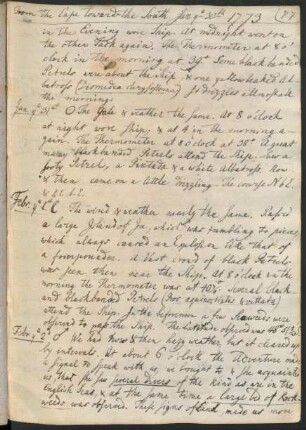 from the Cape toward the South Jan y.e 30th 1773 (77
in the Evening wore Ship. At midnight went on
the other Tack again. The thermometer at 8 o'
clock in the morning at 34°. Some black banded
Petrels were about the Ship, & one yellowbeaked Al-
batross (Diomedea chrysostoma). It drizzles almost all
the morning.
Jan y.e 31st ☉ The Gale & weather the same. At 8 o'clock
at night wore Ship, & at 4 in the morning a-
gain. The Thermometer at 8 o'clock at 35°. A great
many black banded Petrels attend the Ship, Saw a
Petrel, a Pintado & a white Albatross. Now
& then came on a little drizzling. The course NbE.
Febr. y.e 1st ☾ The wind & weather nearly the same. Passed
a large Island of Ice, which was tumbling to pieces,
which always caused an Explosion like that of
a fourpounder. A vast crowd of black Petrels
was seen then near the Ship. At 8 o'clock in the
morning the thermometer was at 40½. Several black
and blackbanded Petrels (Proc. aequinoctialis & vittata)
attend the Ship. In the forenoon a few Seaweeds were
observed to pass the Ship. The Latitude observed was 48° 51'
Febr. y.e 2d ♂ We had now & then hazy weather but it cleared up
by intervals. At about 6 o'clock the Adventure made
a signal to speak with us, we brought to & she acquainted
us, that she saw several divers of the kind as are in the
English Seas, & at the same time a large bed of Rock-
weeds was observed. These signs of land made us more